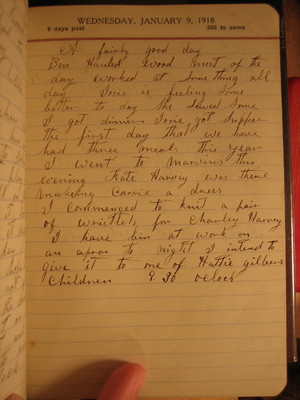 WEDNESDAY, JANUARY 9, 1918
9 days past 356 to come
A fairly good day
Ben Hauled Wood Most of the
day worked at Something all
day Josie is feeling Some
better to day She Sewed Some
I got dinner Josie got Supper
the first day that we have
had three meals this year
I went to Marvins this
evening Kate Harvey was there
making Carrie a dress
I commenced to knit a pair
of wristlets for Charley Harvey
I have bin at work on
an apron to night I intend to
give it to one of Hattie
Children 9 30 oclock